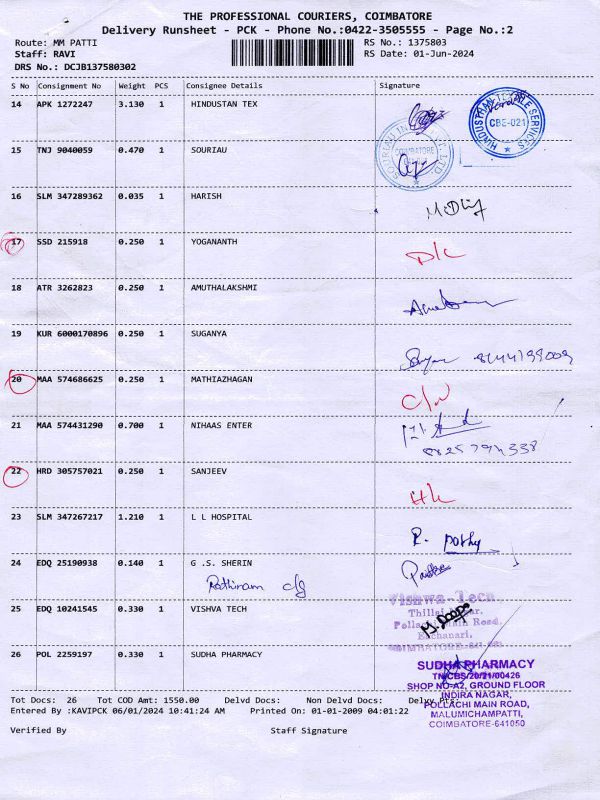 THE PROFESSIONAL COURIERS, COIMBATORE
Delivery Runsheet - PCK - Phone No.:0422-3505555 - Page No.:2
Route: MM PATTI RS No.: 1375803
Staff: RAVI RS Date: 01-Jun-2024
DRS No.: DCJB137580302
S No Consignment No Weight PCS Consignee Details Signature
14 APK 1272247 3.130 1 HINDUSTAN TEX
CBE-021
15 TNJ 9040059 0.470 1 SOURIAU
COIMBATORE
16 SLM 347289362 0.035 1 HARISH
17 SSD 215918 0.250 1 YOGANANTH
D/c
18 ATR 3262823 0.250 1 AMUTHALAKSHMI
19 KUR 6000170896 0.250 1 SUGANYA
20 MAA 574686625 0.250 1 MATHIAZHAGAN
21 MAA 574431290 0.700 1 NIHAAS ENTER
22 HRD 305757021 0.250 1 SANJEEV
23 SLM 347267217 1.210 1 L L HOSPITAL
R. pothy
24 EDQ 25190938 0.140 1 G .S. SHERIN
25 EDQ 10241545 0.330 1 VISHVA TECH
Vishwa-Tech
26 POL 2259197 0.330 1 SUDHA PHARMACY
SUDHA PHARMACY
TN/CBS/20/21/00426
SHOP NO-A2, GROUND FLOOR
INDIRA NAGAR,
POLLACHI MAIN ROAD,
MALUMICHAMPATTI,
COIMBATORE-641050
Tot Docs: 26 Tot COD Amt: 1550.00 Delvd Docs: Non Delvd Docs:
Entered By :KAVIPCK 06/01/2024 10:41:24 AM Printed On: 01-01-2009 04:01:22
Verified By Staff Signature